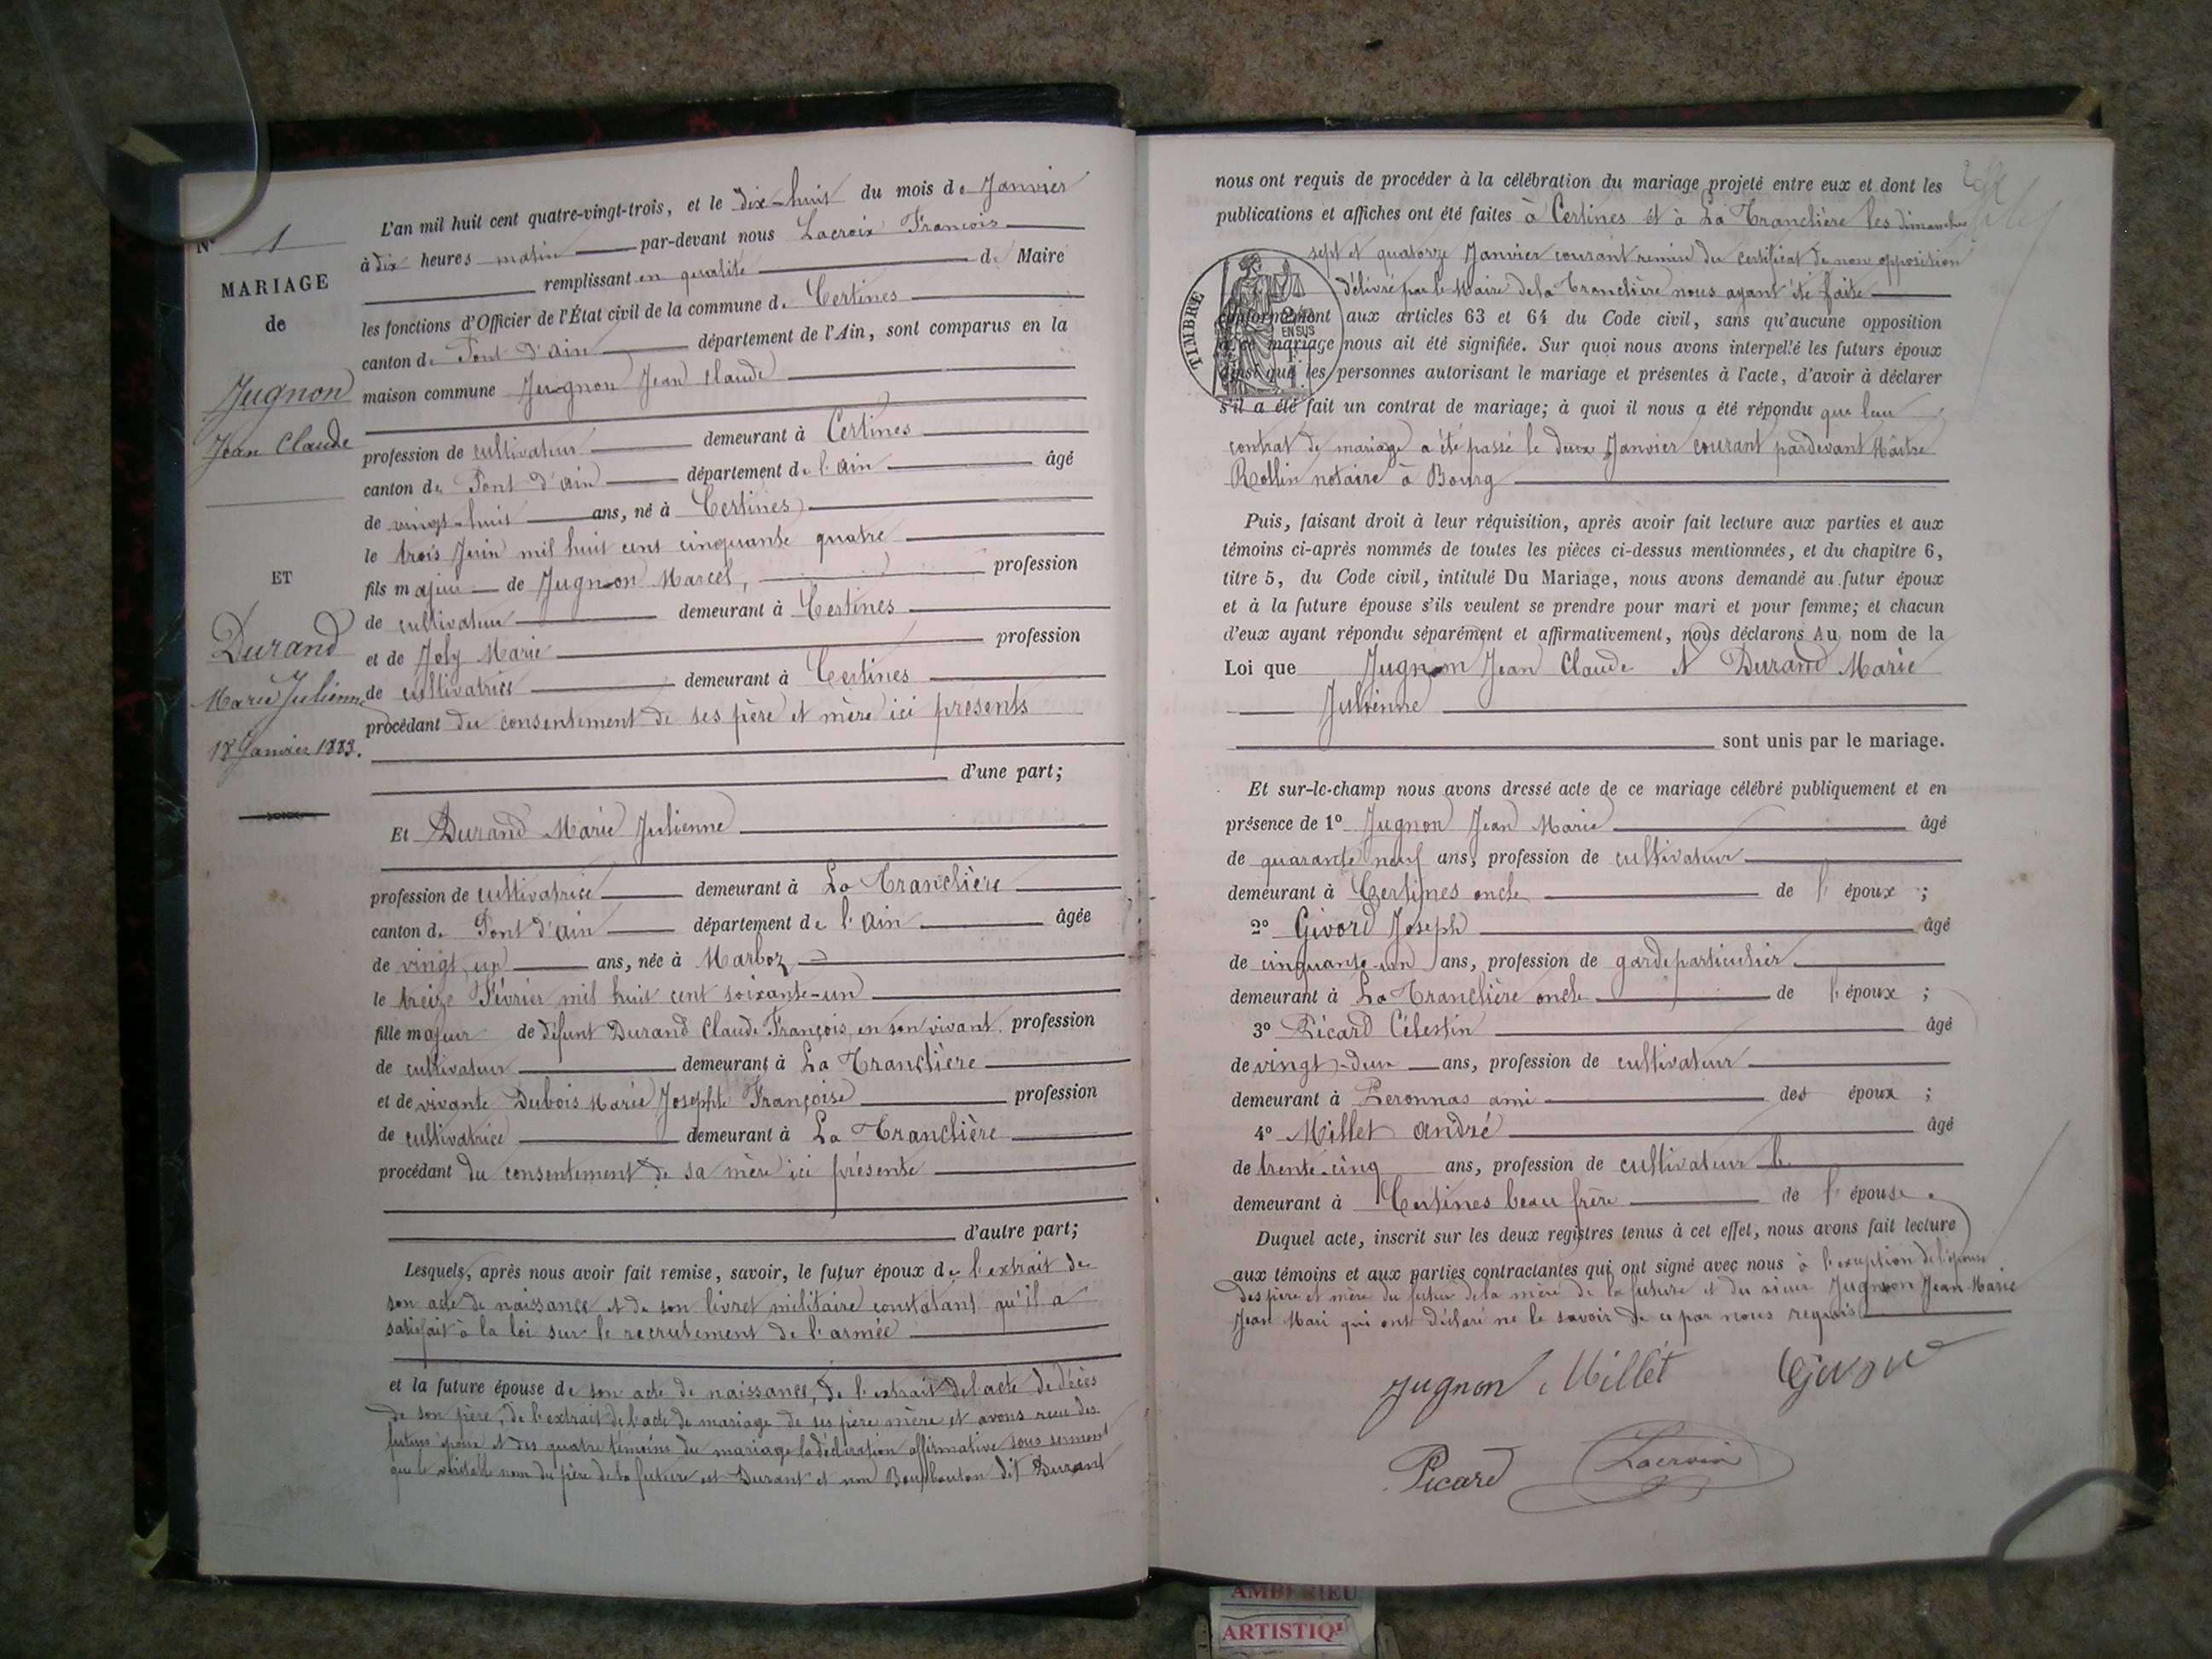 N° 1
MARIAGE
de
Jugnon
Jean Claude
ET
Durand
Marie Julienne
18 Janvier 1883.
L'an mil huit cent quatre-vingt-trois, et le dix-huit du mois de Janvier
à dix heures matin par-devant nous Lacroix François
remplissant en qualité de Maire
les fonctions d'Officier de l'État civil de la commune de Certines
canton de Pont d'Ain département de l'Ain, sont comparus en la
maison commune Jugnon Jean Claude
profession de cultivateur demeurant à Certines
canton de Pont d'ain département de l'ain âgé
de vingt-huit ans, né à Certines
le trois Juin mil huit cent cinquante quatre
fils majeur de Jugnon Marcel, profession
de cultivateur demeurant à Certines
et de Joly Marie profession
de cultivatrice demeurant à Certines
procédant du consentement de ses père et mère ici présents
d'une part;
Et Durand Marie Julienne
profession de cultivatrice demeurant à La Tranclière
canton de Pont d'ain département de l'ain âgée
de vingt un ans, née à Marboz
le treize Février mil huit cent soixante-un
fille majeur de défunt Durand Claude François, en son vivant profession
de cultivateur demeurant à La Tranclière
et de vivante Dubois Marie Josephte Françoise profession
de cultivatrice demeurant à La Tranclière
procédant du consentement de sa mère ici présente
d'autre part;
Lesquels, après nous avoir fait remise, savoir, le futur époux de l'extrait de
son acte de naissance et de son livret militaire constatant qu'il a
satisfait à la loi sur le recrutement de l'armée
et la future épouse de son acte de naissance, de l'extrait de l'acte de décès
de son père, de l'extrait de l'acte de mariage de ses père mère et avons reçu des
futurs époux et des quatre témoins du mariage la déclaration affirmative sous serment
que le véritable nom du père de la future est Durant et non dit Durant
nous ont requis de procéder à la célébration du mariage projeté entre eux et dont les
publications et affiches ont été faites à Certines et à La Tranclière les dimanches
sept et quatorze Janvier courant remise du certificat de non opposition
délivré par le Maire de la Tranclière nous ayant été faite
TIMBRE
EN SUS
conformément aux articles 63 et 64 du Code civil, sans qu'aucune opposition
à ce mariage nous ait été signifiée. Sur quoi nous avons interpellé les futurs époux
ainsi que les personnes autorisant le mariage et présentes à l'acte, d'avoir à déclarer
s'il a été fait un contrat de mariage; à quoi il nous a été répondu que leur
contrat de mariage a été passé le deux Janvier courant pardevant Maître
Rollin notaire à Bourg
Puis, faisant droit à leur réquisition, après avoir fait lecture aux parties et aux
témoins ci-après nommés de toutes les pièces ci-dessus mentionnées, et du chapitre 6,
titre 5, du Code civil, intitulé Du Mariage, nous avons demandé au futur époux
et à la future épouse s'ils veulent se prendre pour mari et pour femme; et chacun
d'eux ayant répondu séparément et affirmativement, nous déclarons Au nom de la
Loi que Jugnon Jean Claude et Durand Marie
Julienne
sont unis par le mariage.
Et sur-le-champ nous avons dressé acte de ce mariage célébré publiquement et en
présence de 1° Jugnon Jean Marie âgé
de quarante neuf ans, profession de cultivateur
demeurant à Certines oncle de l'époux ;
2° Givord Joseph âgé
de cinquante-un ans, profession de garde particulier
demeurant à La Tranclière oncle de l'époux ;
3° Picard Célestin âgé
de vingt-deux ans, profession de cultivateur
demeurant à Peronnas ami des époux ;
4° Millet andré âgé
de trente-cinq ans, profession de cultivateur
demeurant à Certines beau frère de l'épouse.
Duquel acte, inscrit sur les deux registres tenus à cet effet, nous avons fait lecture
aux témoins et aux parties contractantes qui ont signé avec nous à l'exception de l'épouse
des père et mère du futur de la mère de la future et du sieur Jugnon Jean-Marie
Jean Mari qui ont déclaré ne le savoir de ce par nous requis
Jugnon Millet Givord
Picard Lacroix
AMBERIEU
ARTISTIQ